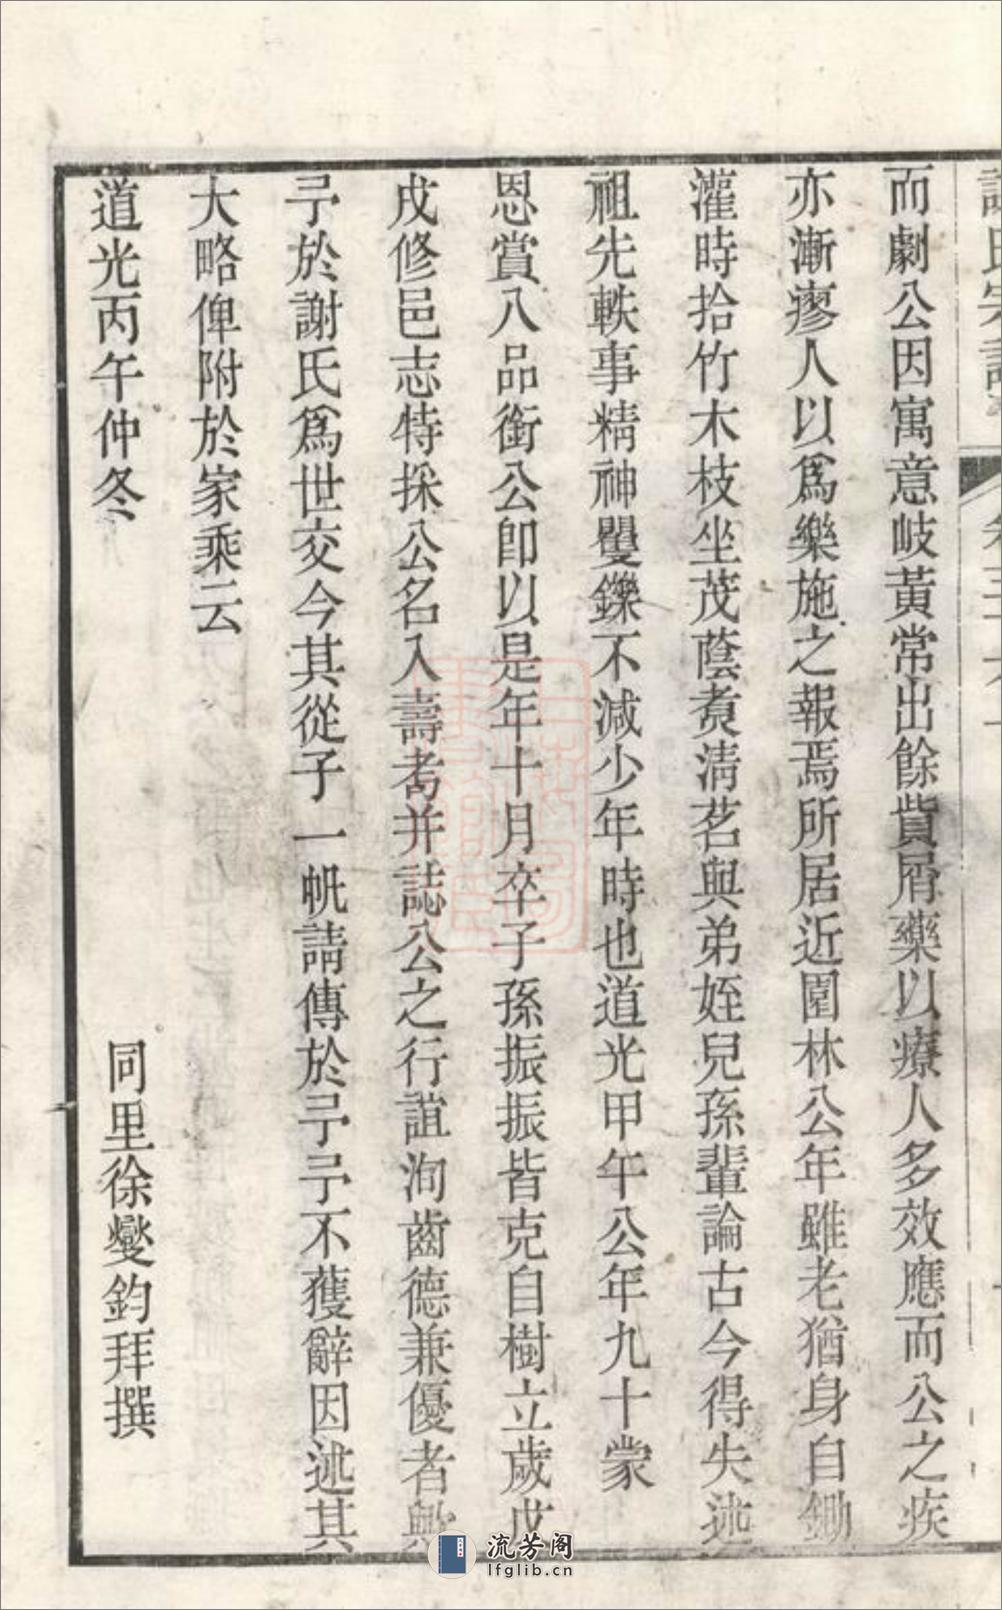 而劇公因寓意岐黃常出餘貲屑藥以療人多效應而公之疾
亦漸瘳人以爲樂施之報焉所居近園林公年雖老猶身自鋤
灌時拾竹木枝坐茂蔭煑清茗與弟姪兒孫輩論古今得失述
祖先軼事精神矍鑠不減少年時也道光甲午公年九十蒙
恩賞八品銜公卽以是年十月卒子孫振振皆克自樹立歲戊
戌修邑志特採公名入壽耇并誌公之行誼洵齒德兼優者與
予於謝氏爲世交今其從子一帆請傳於予予不獲辭因述其
大略俾附於家乘云
道光丙午仲冬
同里徐燮鈞拜撰
流芳阁
lfglib.cn